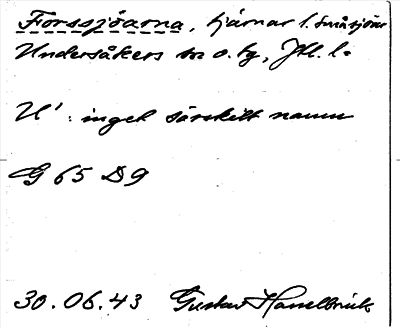 Forssjöarna, tjärnar l. småsjöar
Undersåkers sn o. tg, Jtl. l.
U': inget särskilt namn
G 65 D9
30.06.43 Gustav Hasselbrink